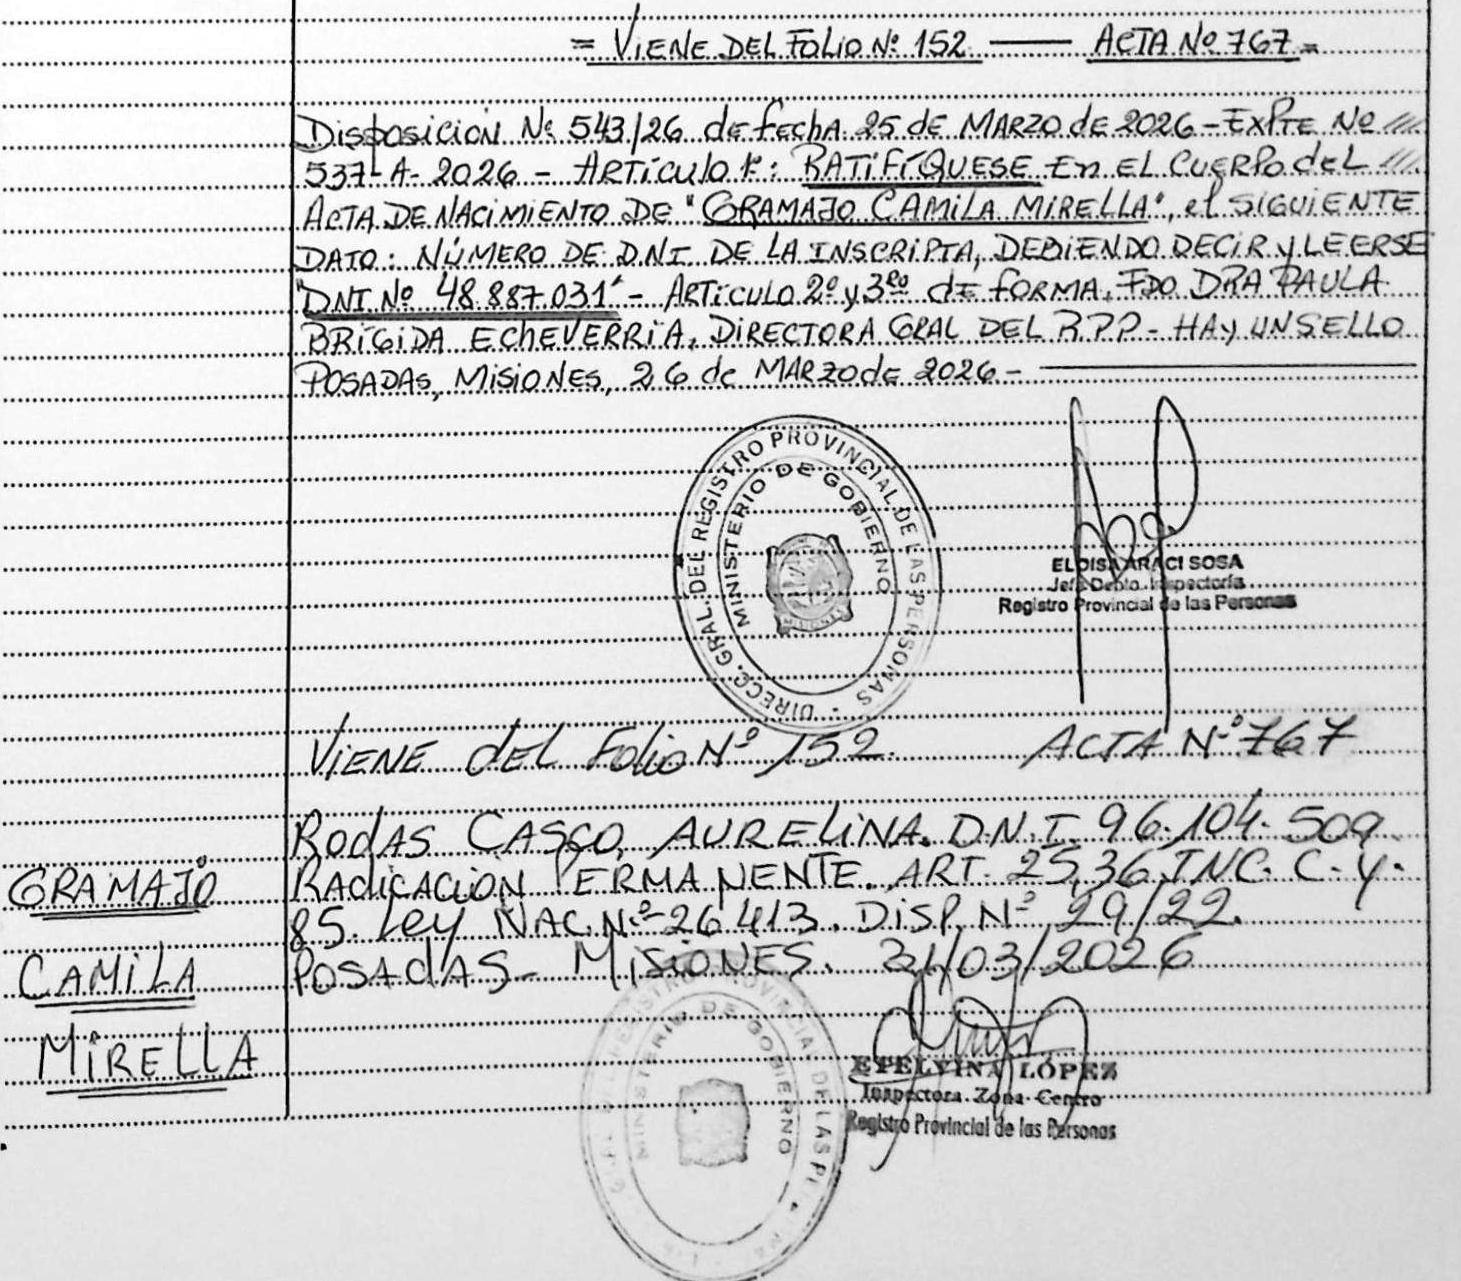 = VIENE DEL FOLIO Nº 152 —— ACTA Nº 767 =
Disposición Nº 543/26 de fecha 25 de MARZO de 2026 - EXPTE Nº ////
537-A-2026 - ARTÍCULO 1º: RATIFÍQUESE En EL CUERPO deL ////
ACTA DE NACIMIENTO DE "GRAMAJO CAMILA MIRELLA", el SIGUIENTE
DATO: NÚMERO DE DNI DE LA INSCRIPTA, DEBIENDO DECIR y LEERSE
"DNI Nº 48.887.031" - ARTÍCULO 2º y 3ro de FORMA, FDO DRA PAULA
BRÍGIDA ECHEVERRÍA, DIRECTORA GRAL DEL R.P.P - HAY UN SELLO
POSADAS, MISIONES, 26 de MARZO de 2026 -
DIRECC. GRAL. DEL REGISTRO PROVINCIAL DE LAS PERSONAS -
MINISTERIO DE GOBIERNO
MISIONES
ELOISA ARACI SOSA
Jefa Depto. Inspectoría
Registro Provincial de las Personas
VIENE del Folio Nº 152. ACTA Nº 767
GRAMAJO
CAMILA
MIRELLA
RODAS CASCO, AURELINA. D.N.I. 96.104.509
RADICACIÓN PERMANENTE. ART. 25,36 INC. C. y.
85. Ley NAC. Nº 26413. DISP. Nº 29/22.
POSADAS - MISIONES. 31/03/2026
MINISTERIO DE GOBIERNO
ETELVINA LÓPEZ
Inspectora Zona Centro
Registro Provincial de las Personas